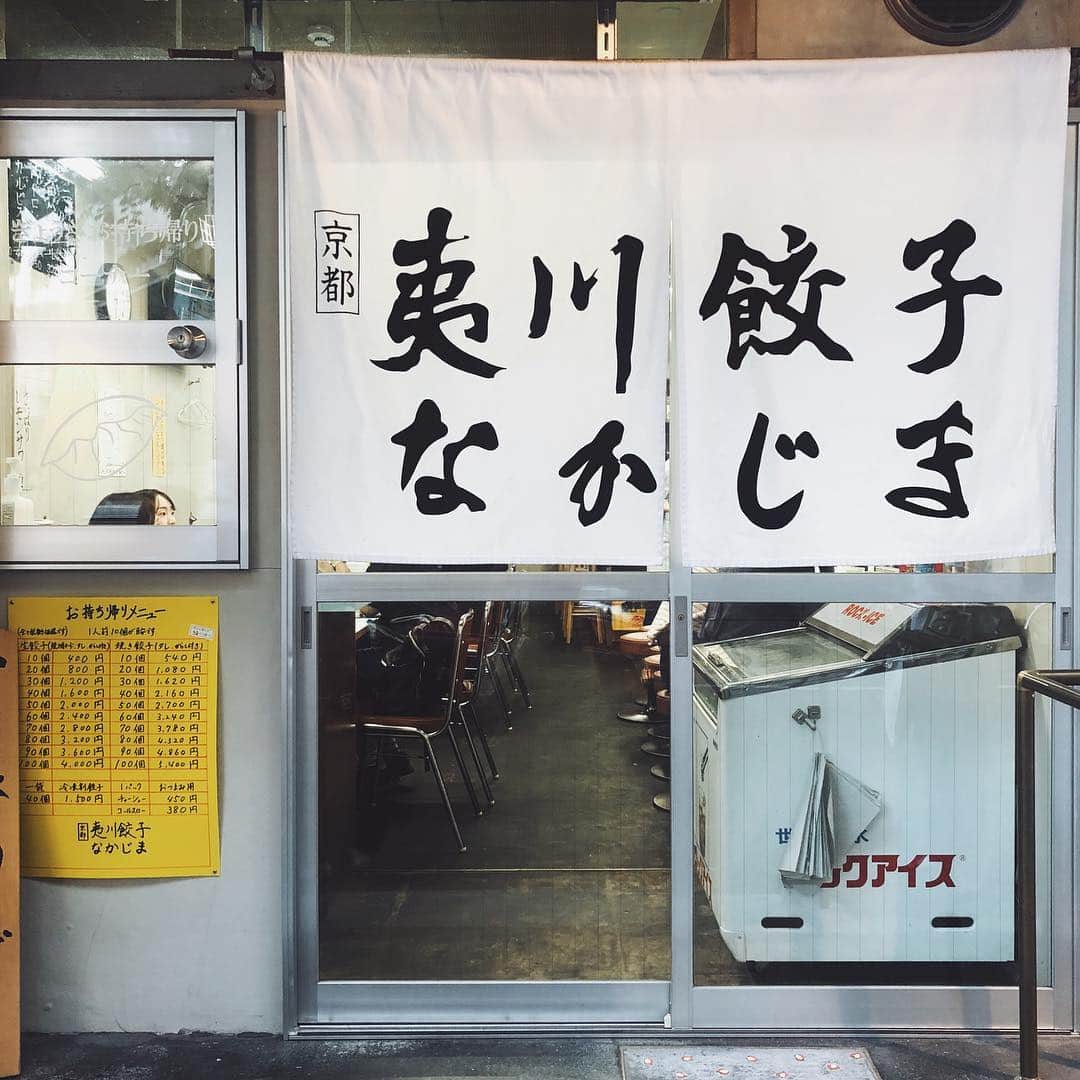 京都
夷川餃子
なかじま
お持ち帰り
お持ち帰りメニュー
1人前10個が絵です
10個 400円 10個 540円
20個 800円 20個 1,080円
30個 1,200円 30個 1,620円
40個 1,600円 40個 2,160円
50個 2,000円 50個 2,700円
60個 2,400円 60個 3,240円
70個 2,800円 70個 3,780円
80個 3,200円 80個 4,320円
90個 3,600円 90個 4,860円
100個 4,000円 100個 5,400円
一袋 冷凍生餃子 1パック おつまみ用
40個 1,500円 チャーシュー 450円
コールスロー 380円
京都 夷川餃子
なかじま
ROCK ICE
ックアイス